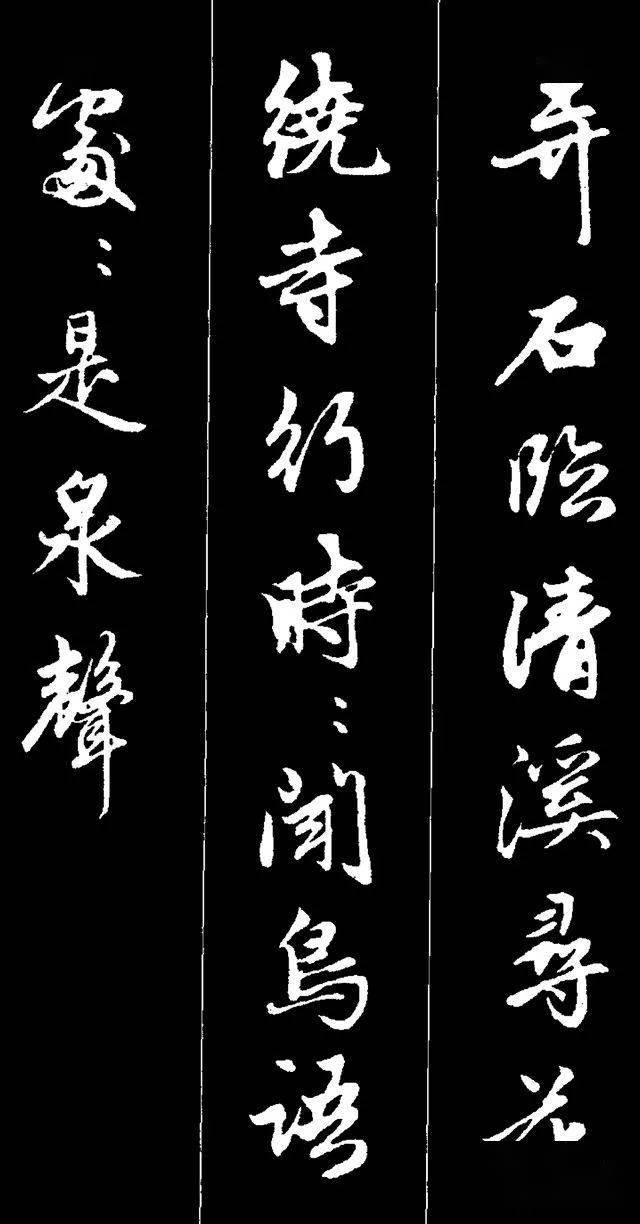 弄石臨清溪尋花
繞寺行時〻聞鳥語
處〻是泉聲